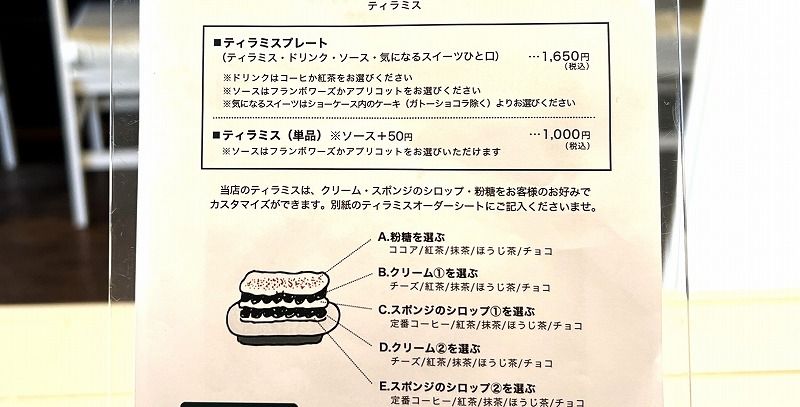 ティラミス
■ティラミスプレート
(ティラミス・ドリンク・ソース・気になるスイーツひと口) …1,650円
(税込)
※ドリンクはコーヒか紅茶をお選びください
※ソースはフランボワーズかアプリコットをお選びください
※気になるスイーツはショーケース内のケーキ(ガトーショコラ除く)よりお選びください
■ティラミス(単品) ※ソース+50円 …1,000円
(税込)
※ソースはフランボワーズかアプリコットをお選びいただけます
当店のティラミスは、クリーム・スポンジのシロップ・粉糖をお客様のお好みで
カスタマイズができます。別紙のティラミスオーダーシートにご記入くださいませ。
A.粉糖を選ぶ
ココア/紅茶/抹茶/ほうじ茶/チョコ
B.クリーム①を選ぶ
チーズ/紅茶/抹茶/ほうじ茶/チョコ
C.スポンジのシロップ①を選ぶ
定番コーヒー/紅茶/抹茶/ほうじ茶/チョコ
D.クリーム②を選ぶ
チーズ/紅茶/抹茶/ほうじ茶/チョコ
E.スポンジのシロップ②を選ぶ
定番コーヒー/紅茶/抹茶/ほうじ茶/チョコ